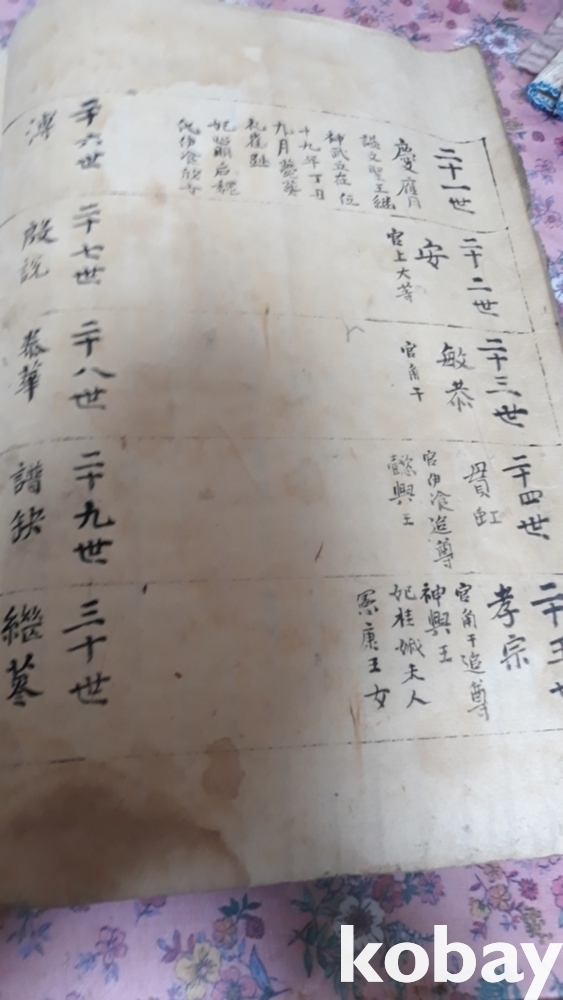 二十一世
慶膺
諡文聖王継
神武立在位
十九年丁丑
九月薨葬
孔雀趾
妃昭明后魏
二十二世
安
官上大等
二十三世
敏恭
官角干
二十四世
實虹
官伊飡追尊
懿興王
孝宗
官角干追尊
神興王
妃桂娥夫人
康王女
二十六世
溥
二十七世
殷説
二十八世
泰華
二十九世
譜缺
三十世
継蔘
kobay